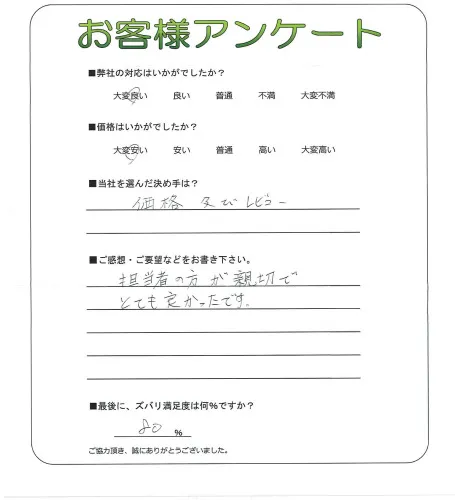 お客様アンケート
■弊社の対応はいかがでしたか？
大変良い 良い 普通 不満 大変不満
■価格はいかがでしたか？
大変安い 安い 普通 高い 大変高い
■当社を選んだ決め手は？
価格 及び レビュー
■ご感想・ご要望などをお書き下さい。
担当者の方が親切で
とても良かったです。
■最後に、ズバリ満足度は何%ですか？
80 %
ご協力頂き、誠にありがとうございました。